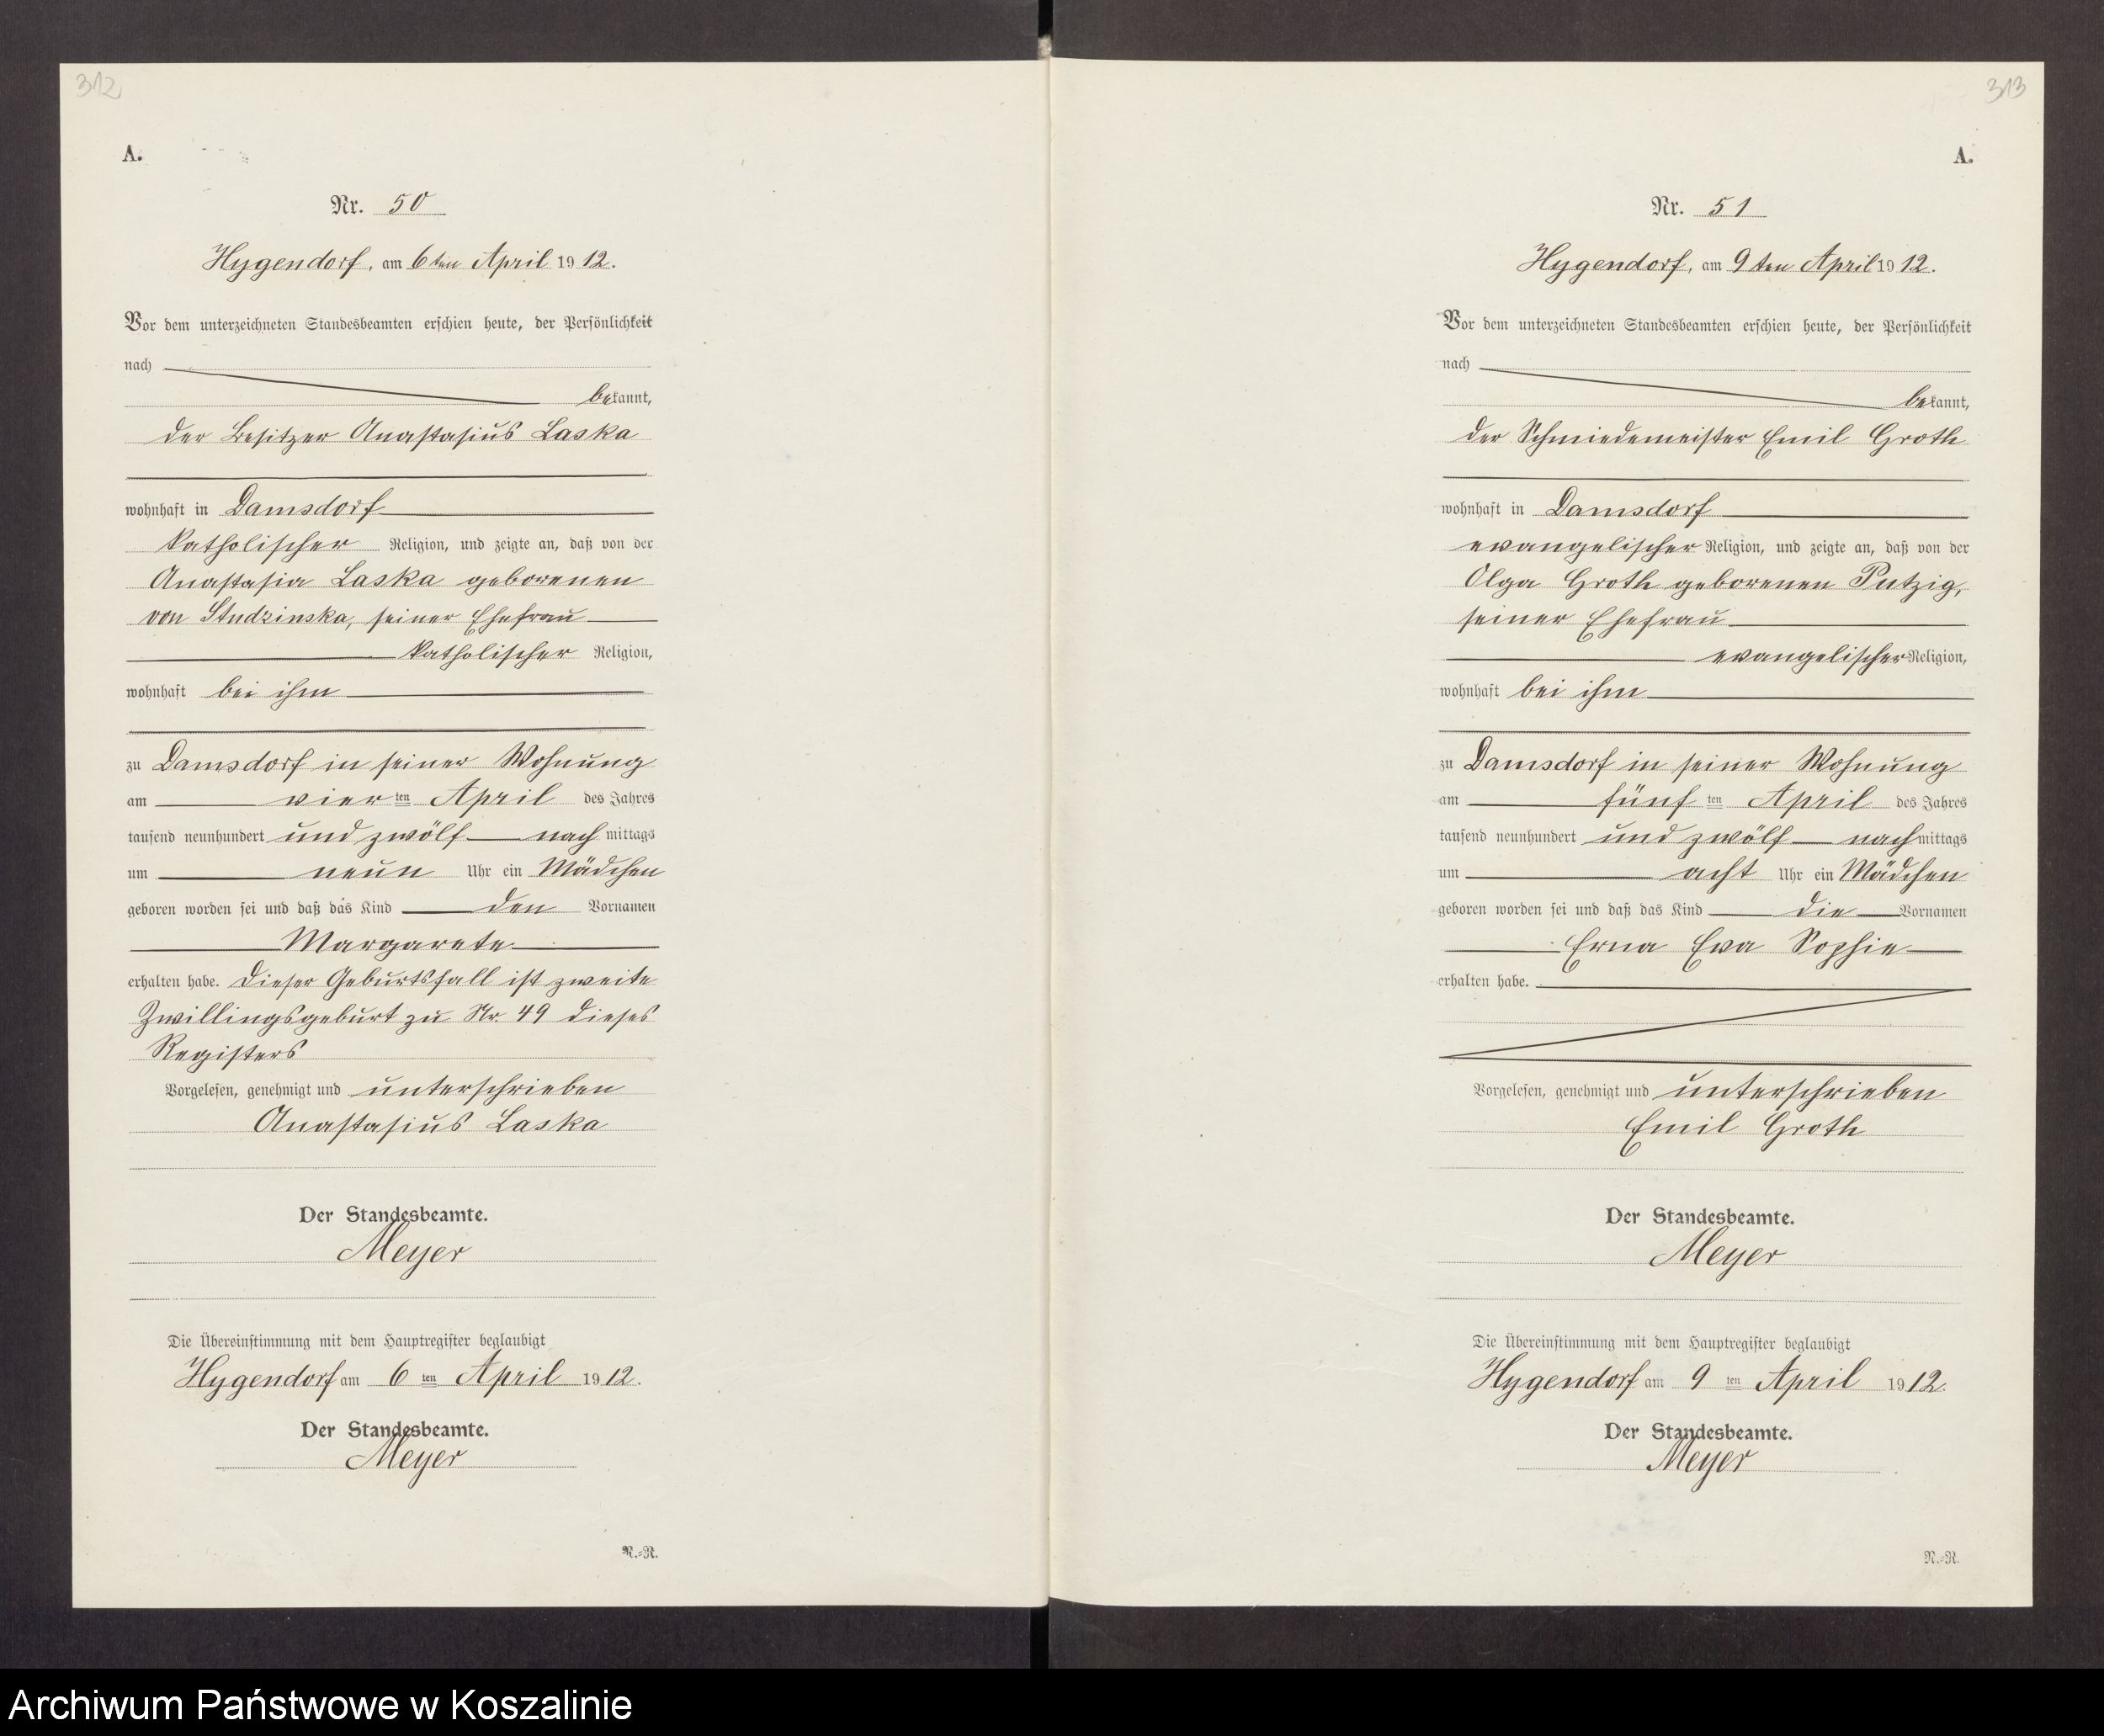 312
A.
Nr. 50
Hygendorf, am 6ten April 1912.
Vor dem unterzeichneten Standesbeamten erschien heute, der Persönlichkeit
nach
bekannt,
der Besitzer Anastasius Laska
wohnhaft in Damsdorf
katholischer Religion, und zeigte an, daß von der
Anastasia Laska geborenen
von Studzinska, seiner Ehefrau
katholischer Religion,
wohnhaft bei ihm
zu Damsdorf in seiner Wohnung
am vierten April des Jahres
tausend neunhundert und zwölf nachmittags
um neun Uhr ein Mädchen
geboren worden sei und daß das Kind den Vornamen
Margarete
erhalten habe. Dieser Geburtsfall ist zweite
Zwillingsgeburt zu Nr. 49 dieses
Registers
Vorgelesen, genehmigt und unterschrieben
Anastasius Laska
Der Standesbeamte.
Meyer
Die Übereinstimmung mit dem Hauptregister beglaubigt
Hygendorf am 6ten April 1912.
Der Standesbeamte.
Meyer
N.-R.
313
A.
Nr. 51
Hygendorf, am 9ten April 1912.
Vor dem unterzeichneten Standesbeamten erschien heute, der Persönlichkeit
nach
bekannt,
der Schmiedemeister Emil Groth
wohnhaft in Damsdorf
evangelischer Religion, und zeigte an, daß von der
Olga Groth geborenen Putzig,
seiner Ehefrau
evangelischer Religion,
wohnhaft bei ihm
zu Damsdorf in seiner Wohnung
am fünften April des Jahres
tausend neunhundert und zwölf nachmittags
um acht Uhr ein Mädchen
geboren worden sei und daß das Kind die Vornamen
Erna Eva Sophie
erhalten habe.
Vorgelesen, genehmigt und unterschrieben
Emil Groth
Der Standesbeamte.
Meyer
Die Übereinstimmung mit dem Hauptregister beglaubigt
Hygendorf am 9ten April 1912.
Der Standesbeamte.
Meyer
N.-R.
Archiwum Państwowe w Koszalinie